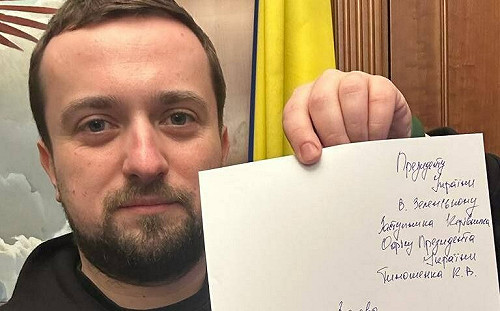 Президенту
України
В. Зеленському
Заступника Керівника
Офісу Президента
України
Тимошенка К.В.
Заява